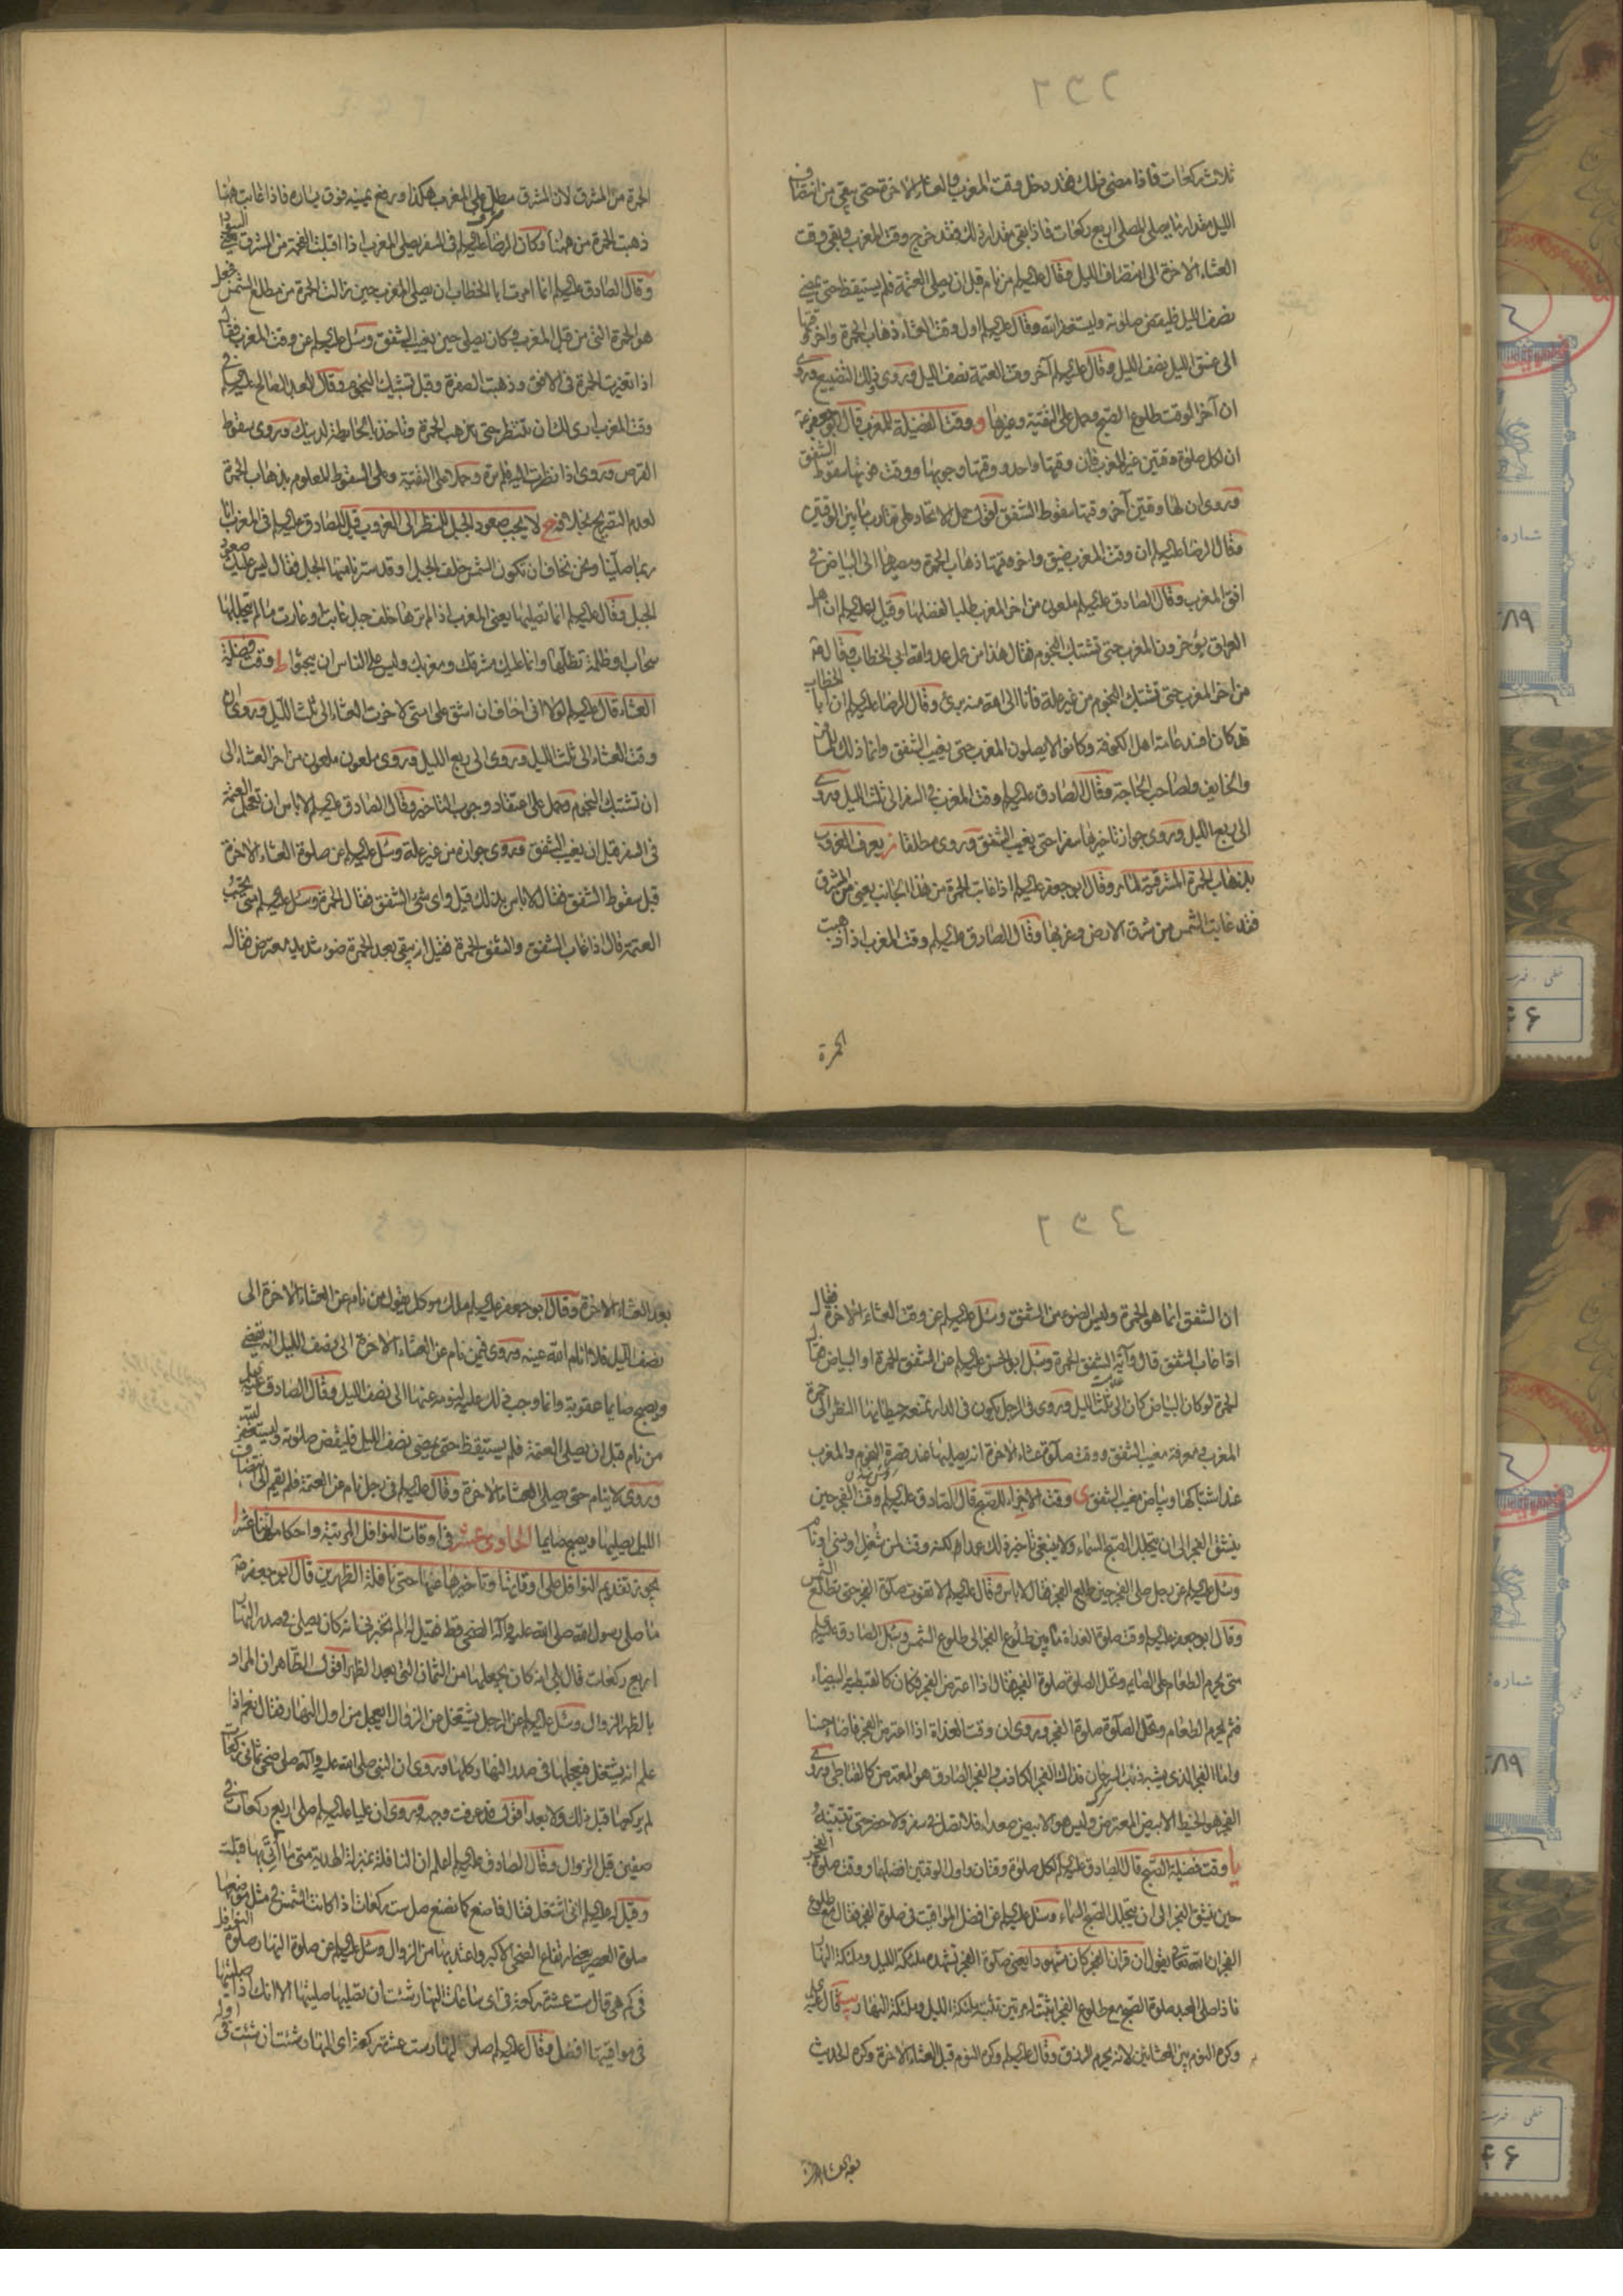 ثلاث ركعات فاذا مضى ذلك فقد دخل وقت المغرب والعشاء الاخرة حتى يبقى من انتصاف
الليل مقدار ما يصلى المصلى اربع ركعات فاذا بقى مقدار ذلك فقد خرج وقت المغرب وبقى وقت
العشاء الاخرة الى انتصاف الليل وقال عليه السلم من نام قبل ان يصلى العتمة فلم يستيقظ حتى يمضى
نصف الليل فليقض صلوته وليستغفر الله وقال عليه السلم اول وقت العشاء ذهاب الحمرة واخر وقتها
الى غسق الليل نصف الليل وقال عليه السلم آخر وقت العتمة نصف الليل وروى ذلك التضييع وروى
ان آخر الوقت طلوع الصبح وحمل على التقية وغيرها و وقت الفضيلة للمغرب قال ابو جعفر ع
ان لكل صلوة وقتين غير المغرب فان وقتها واحد ووقتها وجوبها ووقت فوتها سقوط الشفق
وروى ان لها وقتين آخر وقتها سقوط الشفق اقول حمل الاتحاد على تقارب ما بين الوقتين
وقال الرضا عليه السلم ان وقت المغرب ضيق واخر وقتها ذهاب الحمرة ومصيرها الى البياض في
افق المغرب وقال الصادق عليه السلم ملعون من اخر المغرب طلبا لفضلها وقيل له عليه السلم ان اهل
العراق يؤخرون المغرب حتى تشتبك النجوم فقال هذا من عمل عدو الله ابى الخطاب وقال ع
من اخر المغرب حتى تشتبك النجوم من غير علة فانا الى الله منه برئ وقال الرضا عليه السلم ان ابا الخطاب
قد كان افسد عامة اهل الكوفة وكانوا لا يصلون المغرب حتى يغيب الشفق وانما ذلك للمسافر
والخايف ولصاحب الحاجة وقال الصادق عليه السلم وقت المغرب في السفر الى ثلث الليل وروى
الى ربع الليل وروى جواز تاخيرها سفرا حتى يغيب الشفق وروى مطلقا ز يعرف الغروب
بذهاب الحمرة المشرقية لما مر وقال ابو جعفر عليه السلم اذا غابت الحمرة من هذا الجانب يعنى من المشرق
فقد غابت الشمس من شرق الارض وغربها وقال الصادق عليه السلم وقت المغرب اذا ذهبت
الحمرة
الحمرة من المشرق لان المشرق مطل على المغرب هكذا ورفع يمينه فوق يساره فاذا غابت ههنا
ذهبت الحمرة من ههنا وكان الرضا عليه السلم في السفر يصلى المغرب اذا اقبلت الفحمة من المشرق يعنى السواد
وقال الصادق عليه السلم انما امرت ابا الخطاب ان يصلى المغرب حين زالت الحمرة من مطلع الشمس فجعل
هو الحمرة التى من قبل المغرب فكان يصلى حين يغيب الشفق وسئل عليه السلم عن وقت المغرب فقال
اذا تغيرت الحمرة في الافق وذهبت الصفرة وقبل تشتبك النجوم وقال العبد الصالح عليه السلم في
وقت المغرب ارى لك ان تنتظر حتى تذهب الحمرة وتاخذ بالحائطة لدينك وروى سقوط
القرص وروى اذا نظرت اليه فلم تره وحملا على التقية وعلى السقوط المعلوم بذهاب الحمرة
لعدم التصريح بخلافه ح لا يجب صعود الجبل للنظر الى الغروب قيل للصادق عليه السلم في المغرب انا
ربما صلينا ونحن نخاف ان تكون الشمس خلف الجبل او قد سترنا منها الجبل فقال ليس عليك صعود
الجبل وقال عليه السلم انما تصليها يعنى المغرب اذا لم ترها خلف جبل غابت او غارت ما لم يتجللها
سحاب او ظلمة تظلها وانما عليك مشرقك ومغربك وليس على الناس ان يبحثوا ط وقت فضيلة
العشاء قال عليه السلم لولا انى اخاف ان اشق على امتى لاخرت العشاء الى ثلث الليل وروى ان
وقت العشاء الى ثلث الليل وروى الى ربع الليل وروى ملعون ملعون من اخر العشاء الى
ان تشتبك النجوم وحمل على اعتقاد وجوب التاخير وقال الصادق عليه السلم لا باس ان تعجل العتمة
في السفر قبل ان يغيب الشفق وروى جوازه من غير علة وسئل عليه السلم عن صلوة العشاء الاخرة
قبل سقوط الشفق فقال لا باس بذلك قيل واى شئ الشفق فقال الحمرة وسئل عليه السلم متى تجب
العتمة قال اذا غاب الشفق والشفق الحمرة فقيل انه يبقى بعد الحمرة ضوء شديد معترض فقال
ان الشفق انما هو الحمرة وليس الضوء من الشفق وسئل عليه السلم عن وقت العشاء الاخرة فقال
اذا غاب الشفق قال وآية الشفق الحمرة وسئل ابو الحسن عليه السلم عن الشفق الحمرة او البياض فقال
الحمرة لو كان البياض كان الى ثلث الليل وروى في الرجل يكون في الدار تمنعه حيطانها النظر الى حمرة
المغرب ومعرفة مغيب الشفق ووقت صلوة عشاء الاخرة انه يصليها عند قصرة النجوم والمغرب
عند اشتباكها وبياض مغيب الشفق ى وقت الاجزاء للصبح قال الصادق عليه السلم وقت الفجر حين
ينشق الفجر الى ان يتجلل الصبح السماء ولا ينبغى تاخير ذلك عمدا ولكنه وقت لمن شغل او نسى او نام
وسئل عليه السلم عن رجل صلى الفجر حين طلع الفجر فقال لا باس وقال عليه السلم لا تفوت صلوة الفجر حتى تطلع الشمس
وقال ابو جعفر عليه السلم وقت صلوة الغداة ما بين طلوع الفجر الى طلوع الشمس وسئل الصادق عليه السلم
متى يحرم الطعام على الصايم وتحل الصلوة صلوة الفجر فقال اذا اعترض الفجر فكان كالقبطية البيضاء
فثم يحرم الطعام وتحل الصلوة صلوة الفجر وروى ان وقت الغداة اذا اعترض الفجر فاضاء حسنا
واما الفجر الذى يشبه ذنب السرحان فذاك الفجر الكاذب والفجر الصادق هو المعترض كالقباطى وروى
الفجر هو الخيط الابيض المعترض وليس هو الابيض صعداء فلا تصل في سفر ولا حضر حتى تتبينه
يا وقت فضيلة الصبح قال الصادق عليه السلم لكل صلوة وقتان واول الوقتين افضلهما ووقت صلوة الفجر
حين ينشق الفجر الى ان يتجلل الصبح السماء وسئل عليه السلم عن افضل المواقيت في صلوة الفجر فقال مع طلوع
الفجر ان الله تعالى يقول ان قران الفجر كان مشهودا يعنى صلوة الفجر تشهده ملئكة الليل وملئكة النهار
فاذا صلى العبد صلوة الصبح مع طلوع الفجر اثبتت له مرتين تثبته ملئكة الليل وملئكة النهار يب قال عليه السلم
وكره النوم بين العشائين لانه يحرم الرزق وقال عليه السلم وكره النوم قبل العشاء الاخرة وكره الحديث
بعد العشاء الاخرة
بعد العشاء الاخرة وقال ابو جعفر عليه السلم ملك موكل يقول من نام عن العشاء الاخرة الى
نصف الليل فلا انام الله عينه وروى فيمن نام عن العشاء الاخرة الى نصف الليل انه يقضى
ويصبح صايما عقوبة وانما وجب ذلك عليه لنومه عنها الى نصف الليل وقال الصادق عليه السلم
من نام قبل ان يصلى العتمة فلم يستيقظ حتى يمضى نصف الليل فليقض صلوته وليستغفر الله
وروى لا ينام حتى صلى العشاء الاخرة وقال عليه السلم في رجل نام عن العتمة فلم يقم الى انتصاف
الليل يصليها ويصبح صايما الحادى عشر في اوقات النوافل المرتبة واحكامها اثنا عشر ا
يجوز تقديم النوافل على اوقاتها وتاخيرها عنها حتى نافلة الظهرين قال ابو جعفر ع
ما صلى رسول الله صلى الله عليه وآله الضحى قط فقيل له الم تخبرنى انه كان يصلى في صدر النهار
اربع ركعات قال بلى انه كان يجعلها من الثمان التى بعد الظهر اقول الظاهر ان المراد
بالظهر الزوال وسئل عليه السلم عن الرجل يشتغل عن الزوال ايعجل من اول النهار فقال نعم اذا
علم انه يشتغل فيعجلها في صدر النهار كلها وروى ان النبى صلى الله عليه وآله صلى ضحى ثمانى ركعات
لم يركعها قبل ذلك ولا بعد اقول قد عرفت وجهه وروى ان عليا عليه السلم صلى اربع ركعات في
صفين قبل الزوال وقال الصادق عليه السلم اعلم ان النافلة بمنزلة الهدية متى ما اتى بها قبلت
وقيل له عليه السلم انى اشتغل فقال فاصنع كما نصنع صل ست ركعات اذا كانت الشمس في مثل موضعها
صلوة العصر يعنى ارتفاع الضحى الاكبر واعتد بها من الزوال وسئل عليه السلم عن صلوة النهار صلوة النوافل
في كم هى قال ست عشرة ركعة في اى ساعات النهار شئت ان تصليها صليتها الا انك اذا صليتها
في مواقيتها افضل وقال عليه السلم صلوة النهار ست عشرة ركعة اى النهار شئت ان شئت في اوله